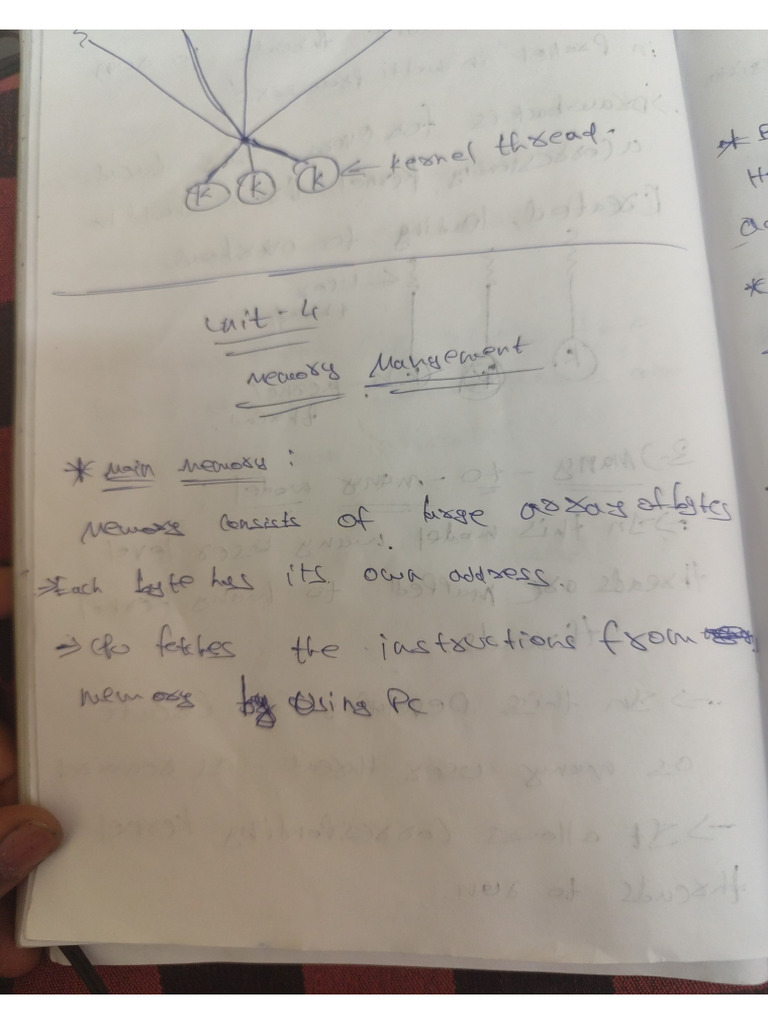 k k k ← kernel thread.
Unit - 4
Memory Mangement
* Main Memory :
Memory consists of large array of bytes
→ Each byte has its own address.
→ CPU fetches the instructions from
memory by Using PC
* 
H
*